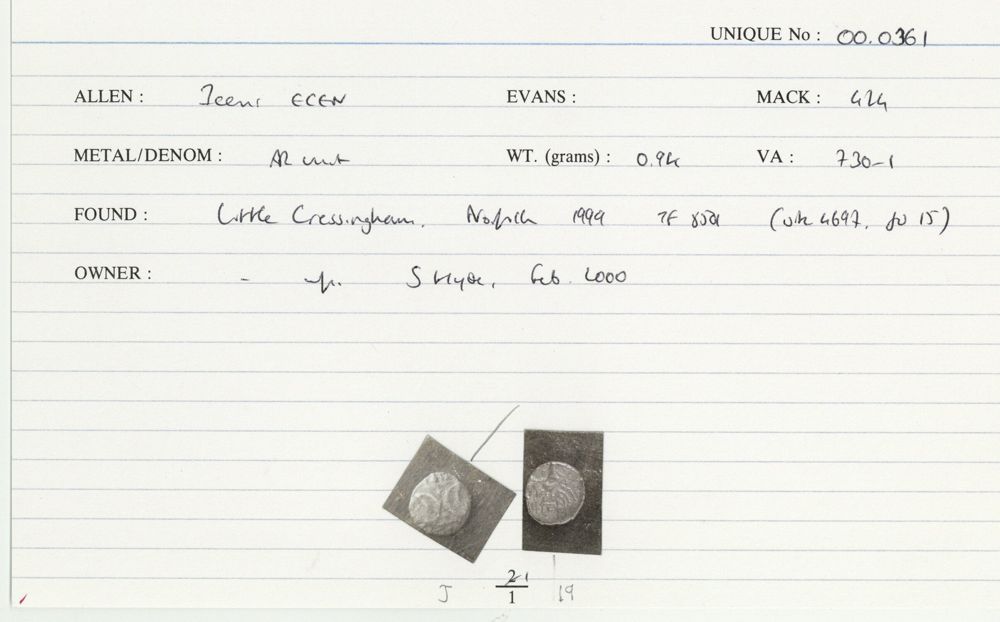 UNIQUE No : 00.0361
ALLEN : Iceni ECEN EVANS : MACK : 424
METAL/DENOM : AR unit WT. (grams) : 0.94 VA : 730-1
FOUND : Little Cressingham, Norfolk 1999 (site 4697, 15)
OWNER : - S Hyde, Feb. 2000
J 21 19
1